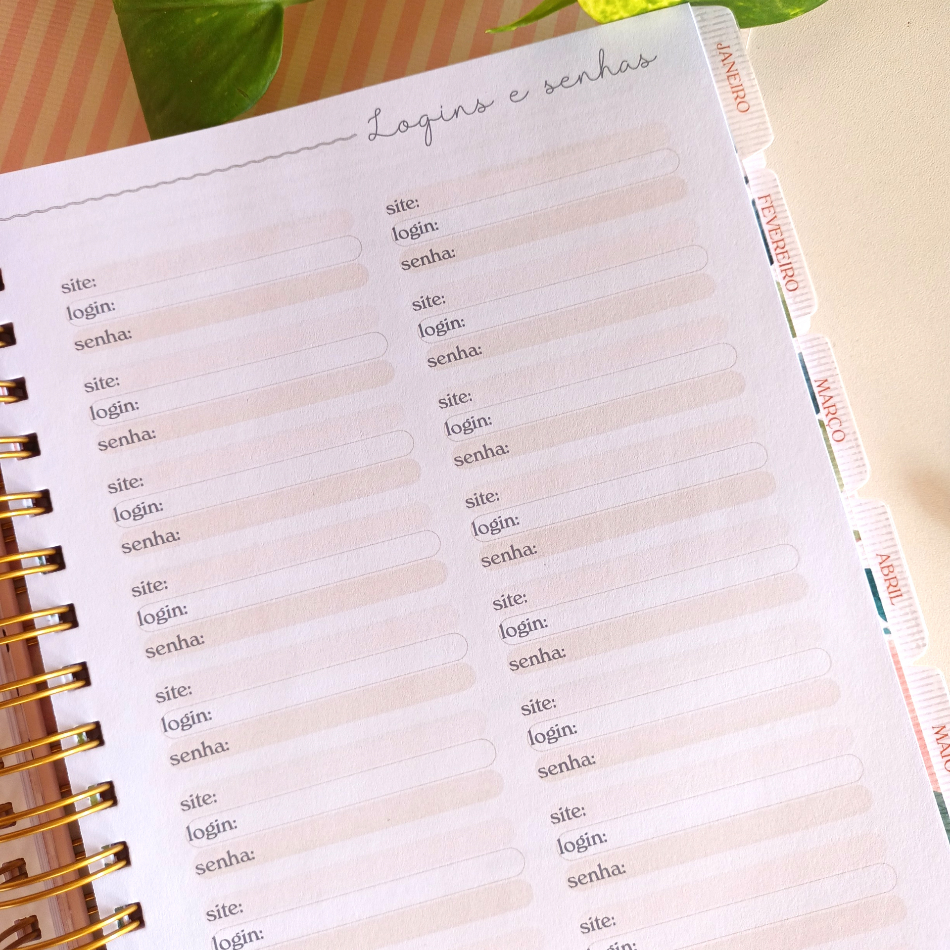 Logins e senhas
site:
login:
senha:
site:
login:
senha:
site:
login:
senha:
site:
login:
senha:
site:
login:
senha:
site:
login:
senha:
site:
login:
site:
login:
senha:
site:
login:
senha:
site:
login:
senha:
site:
login:
senha:
site:
login:
senha:
site:
login:
senha:
site:
login:
senha:
site:
login:
JANEIRO
FEVEREIRO
MARÇO
ABRIL
MAIO